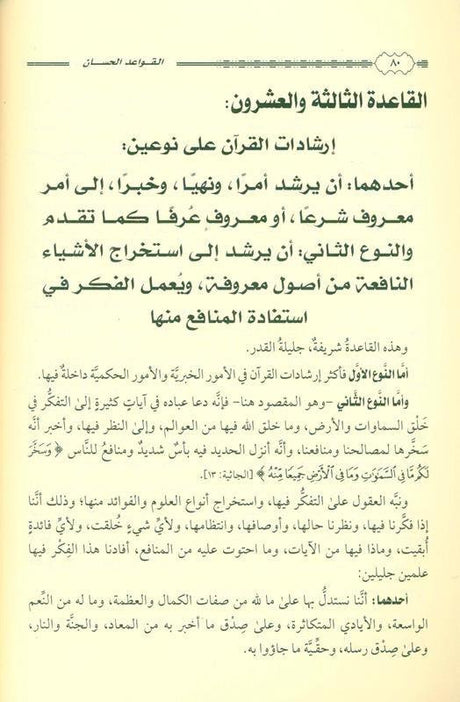 القواعد الحسان
٨٠
القاعدة الثالثة والعشرون:
إرشادات القرآن على نوعين:
أحدهما: أن يرشد أمرًا، ونهيًا، وخبرًا، إلى أمر
معروف شرعًا، أو معروف عُرفًا كما تقدم
والنوع الثاني: أن يرشد إلى استخراج الأشياء
النافعة من أصول معروفة، ويُعمل الفكر في
استفادة المنافع منها
وهذه القاعدةُ شريفةٌ، جليلةُ القدر.
أمَّا النَّوع الأوَّل فأكثر إرشادات القرآن في الأمور الخبريَّة والأمور الحكميَّة داخلةٌ فيها.
وأمَّا النَّوع الثَّاني -وهو المقصود هنا- فإنَّه دعا عباده في آياتٍ كثيرةٍ إلى التفكُّر في
خَلْق السماوات والأرض، وما خلق الله فيها من العوالم، وإلى النظر فيها، وأخبر أنَّه
سَخَّرها لمصالحنا ومنافعنا، وأنَّه أنزل الحديد فيه بأسٌ شديدٌ ومنافعُ للنَّاس ﴿ وَسَخَّرَ
لَكُم مَّا فِي ٱلسَّمَٰوَٰتِ وَمَا فِي ٱلْأَرْضِ جَمِيعًا مِّنْهُ ﴾ [الجاثية: ١٣].
ونبَّه العقول علىٰ التفكُّر فيها، واستخراج أنواع العلوم والفوائد منها؛ وذلك أنَّنا
إذا فكَّرنا فيها، ونظرنا حالها، وأوصافها، وانتظامها، ولأيِّ شيءٍ خُلقت، ولأيِّ فائدةٍ
أُبقيت، وماذا فيها من الآيات، وما احتوت عليه من المنافع، أفادنا هذا الفِكْر فيها
علمين جليلين:
أحدهما: أنَّنا نستدلُّ بها علىٰ ما لله من صفات الكمال والعظمة، وما له من النِّعم
الواسعة، والأيادي المتكاثرة، وعلىٰ صِدْق ما أخبر به من المعاد، والجنَّة والنار،
وعلىٰ صِدْق رسله، وحقِّيَّة ما جاؤوا به.